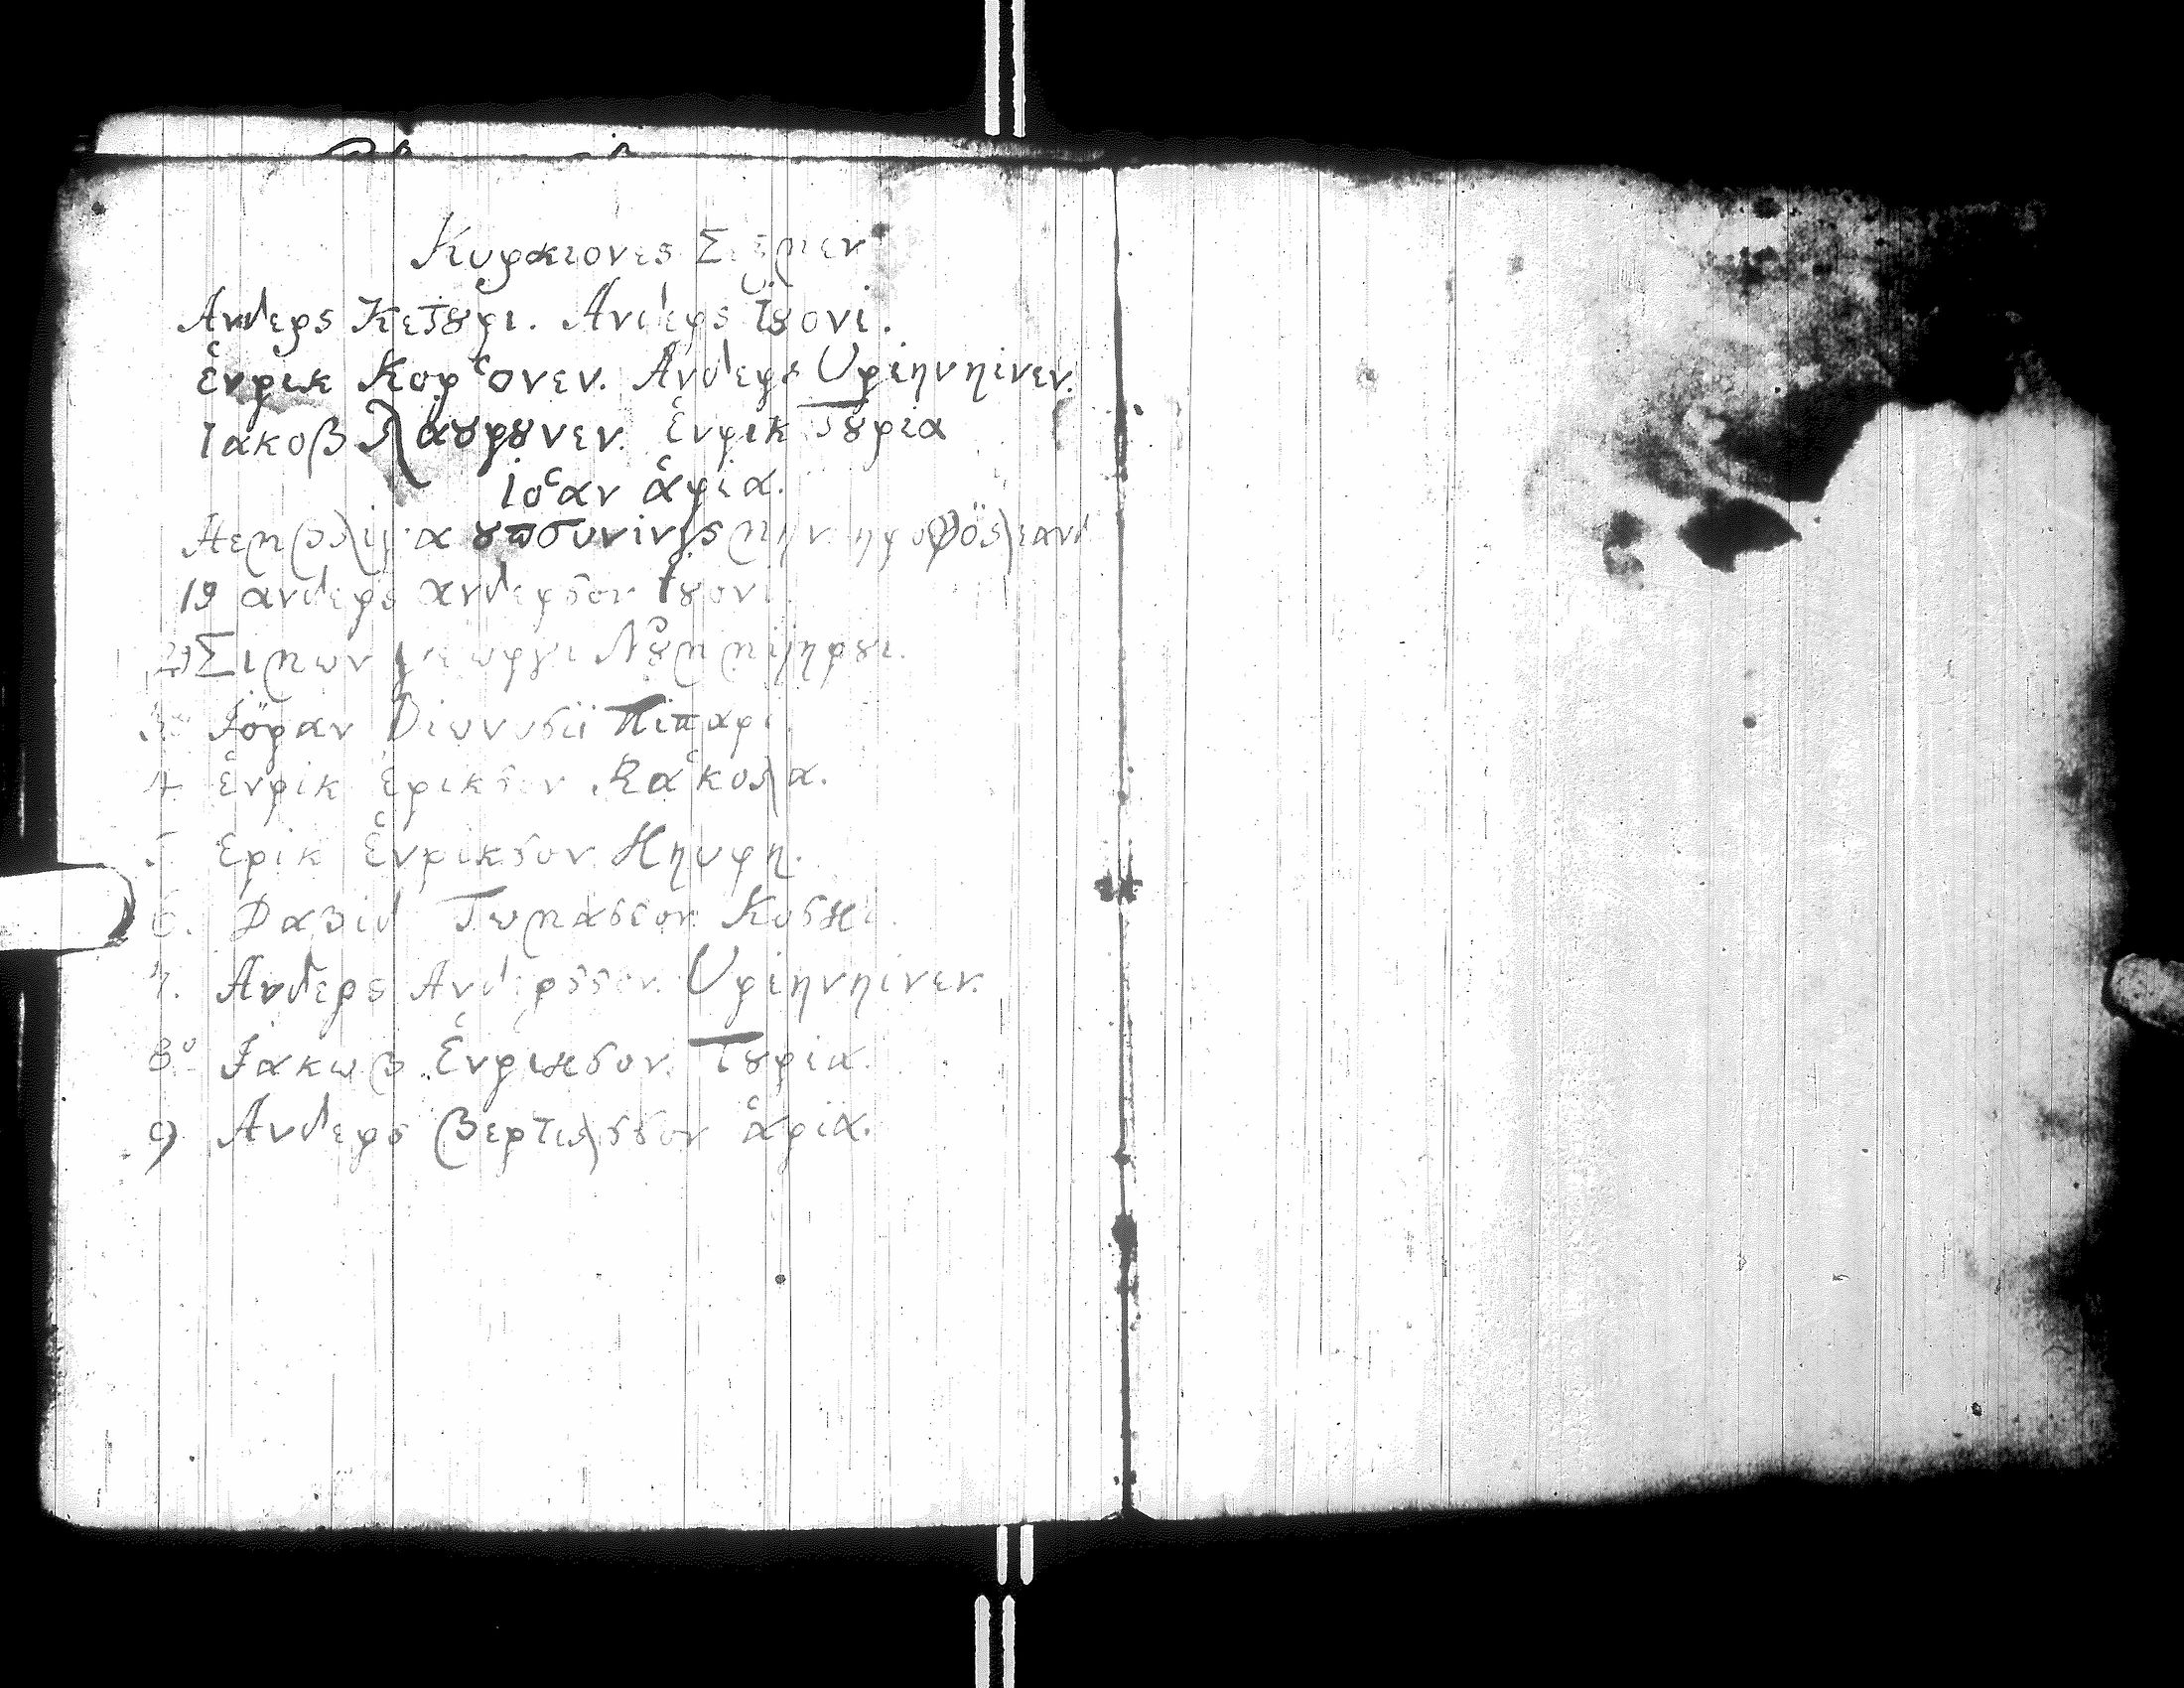 Κυρκιονες Σεξμεν
Ανδερς Κετȣρι. Ανδερς Τȣονί.
ἑνρικ Κορʽονεν. Ανδερς Υρίηνηίνεν.
Ιακοβ Λαȣρȣνεν. ἑνρικ Τȣρία
ἰοʽαν ἁρία.
19 ανδερς ανδερσον Τȣονι
2) Σιμων
3 Ιöραν Διονυσϊι Πιπαρι.
4 ἑνρίκ Ερικσον Καʽκολα.
5 Ερίκ Ἑνρίκσον Κηυρη.
6. Δαβίδ Τωμάσσον Κυσκι.
7. Ανδερς Ανδερσσον Υρίηνηίνεν.
8º Ιακωβ Ἑνρικσον. Τȣρία.
9 Ανδερς βερτιλσσον ἁρία.